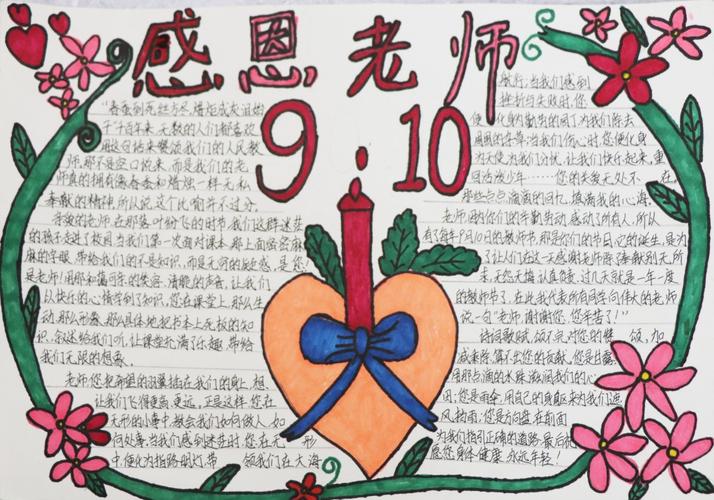 感恩老师
9.10
"春蚕到死丝方尽,蜡炬成灰泪始
千百年来,无数的人们都喜欢
用这句话来赞颂我们的人民教
师,那不是空口说来,而是我们的老
师真的拥有像春蚕和蜡烛一样无私
奉献的精神,所以说这个比喻并不过分。
亲爱的老师,在那落叶纷飞的时节,我们这群迷茫
的孩子走进了校园,当我们第一次面对课本,那上面密密麻
麻的字眼,带给我们的不是知识,而是无穷的疑惑,是您,
是老师!用那和蔼可亲的
清脆的声音,让我们
以快乐的心情学到了知识,您在课堂上,那么生
动,那么形象,那么具体地把书本上死板的知
识,叙述给我们听,让课堂充满了乐趣,带给
我们无限的想象。
老师,您把希望的羽翼插在我们的身上,想
让我们飞得更高,更远,正是这样,您在
无形的小事中,教会我们如何做人,如
何处事,当我们感到迷茫时,您在无形
中,便化为指路明灯,带领我们在大海
航行;当我们感到
挫折与失败时,您
便化身为勤勤的风,为我们除去
周围的
当我们伤心时,您便化身
为天使,为我们分忧,让我们快乐起来,重
回活泼少年……您的关爱无处不在,
那些点点滴滴的回忆,填满我的心海。
老师,因为你们的辛勤劳动,感动了所有人,所以
有了每年9月10日的教师节,那是你们的节日,它的诞生,是为
了让人们在这一天感谢老师
奉献,别无所
求,无怨无悔,认真负责,过几天就是一年一度
的教师节了,在此我代表所有同学向伟大的老师
说一句"老师,谢谢您,您辛苦了!"
诗词歌赋,颂不完对您的赞颂,加
减乘除,算不出您的贡献,您是甘露,
用那点滴的水珠,滋润我们的心
田;您是雨伞,用自己的身躯来为我们遮
风挡雨;您是方向盘,在前面
为我们指引正确的道路,最后祝
愿您身体健康,永远年轻!